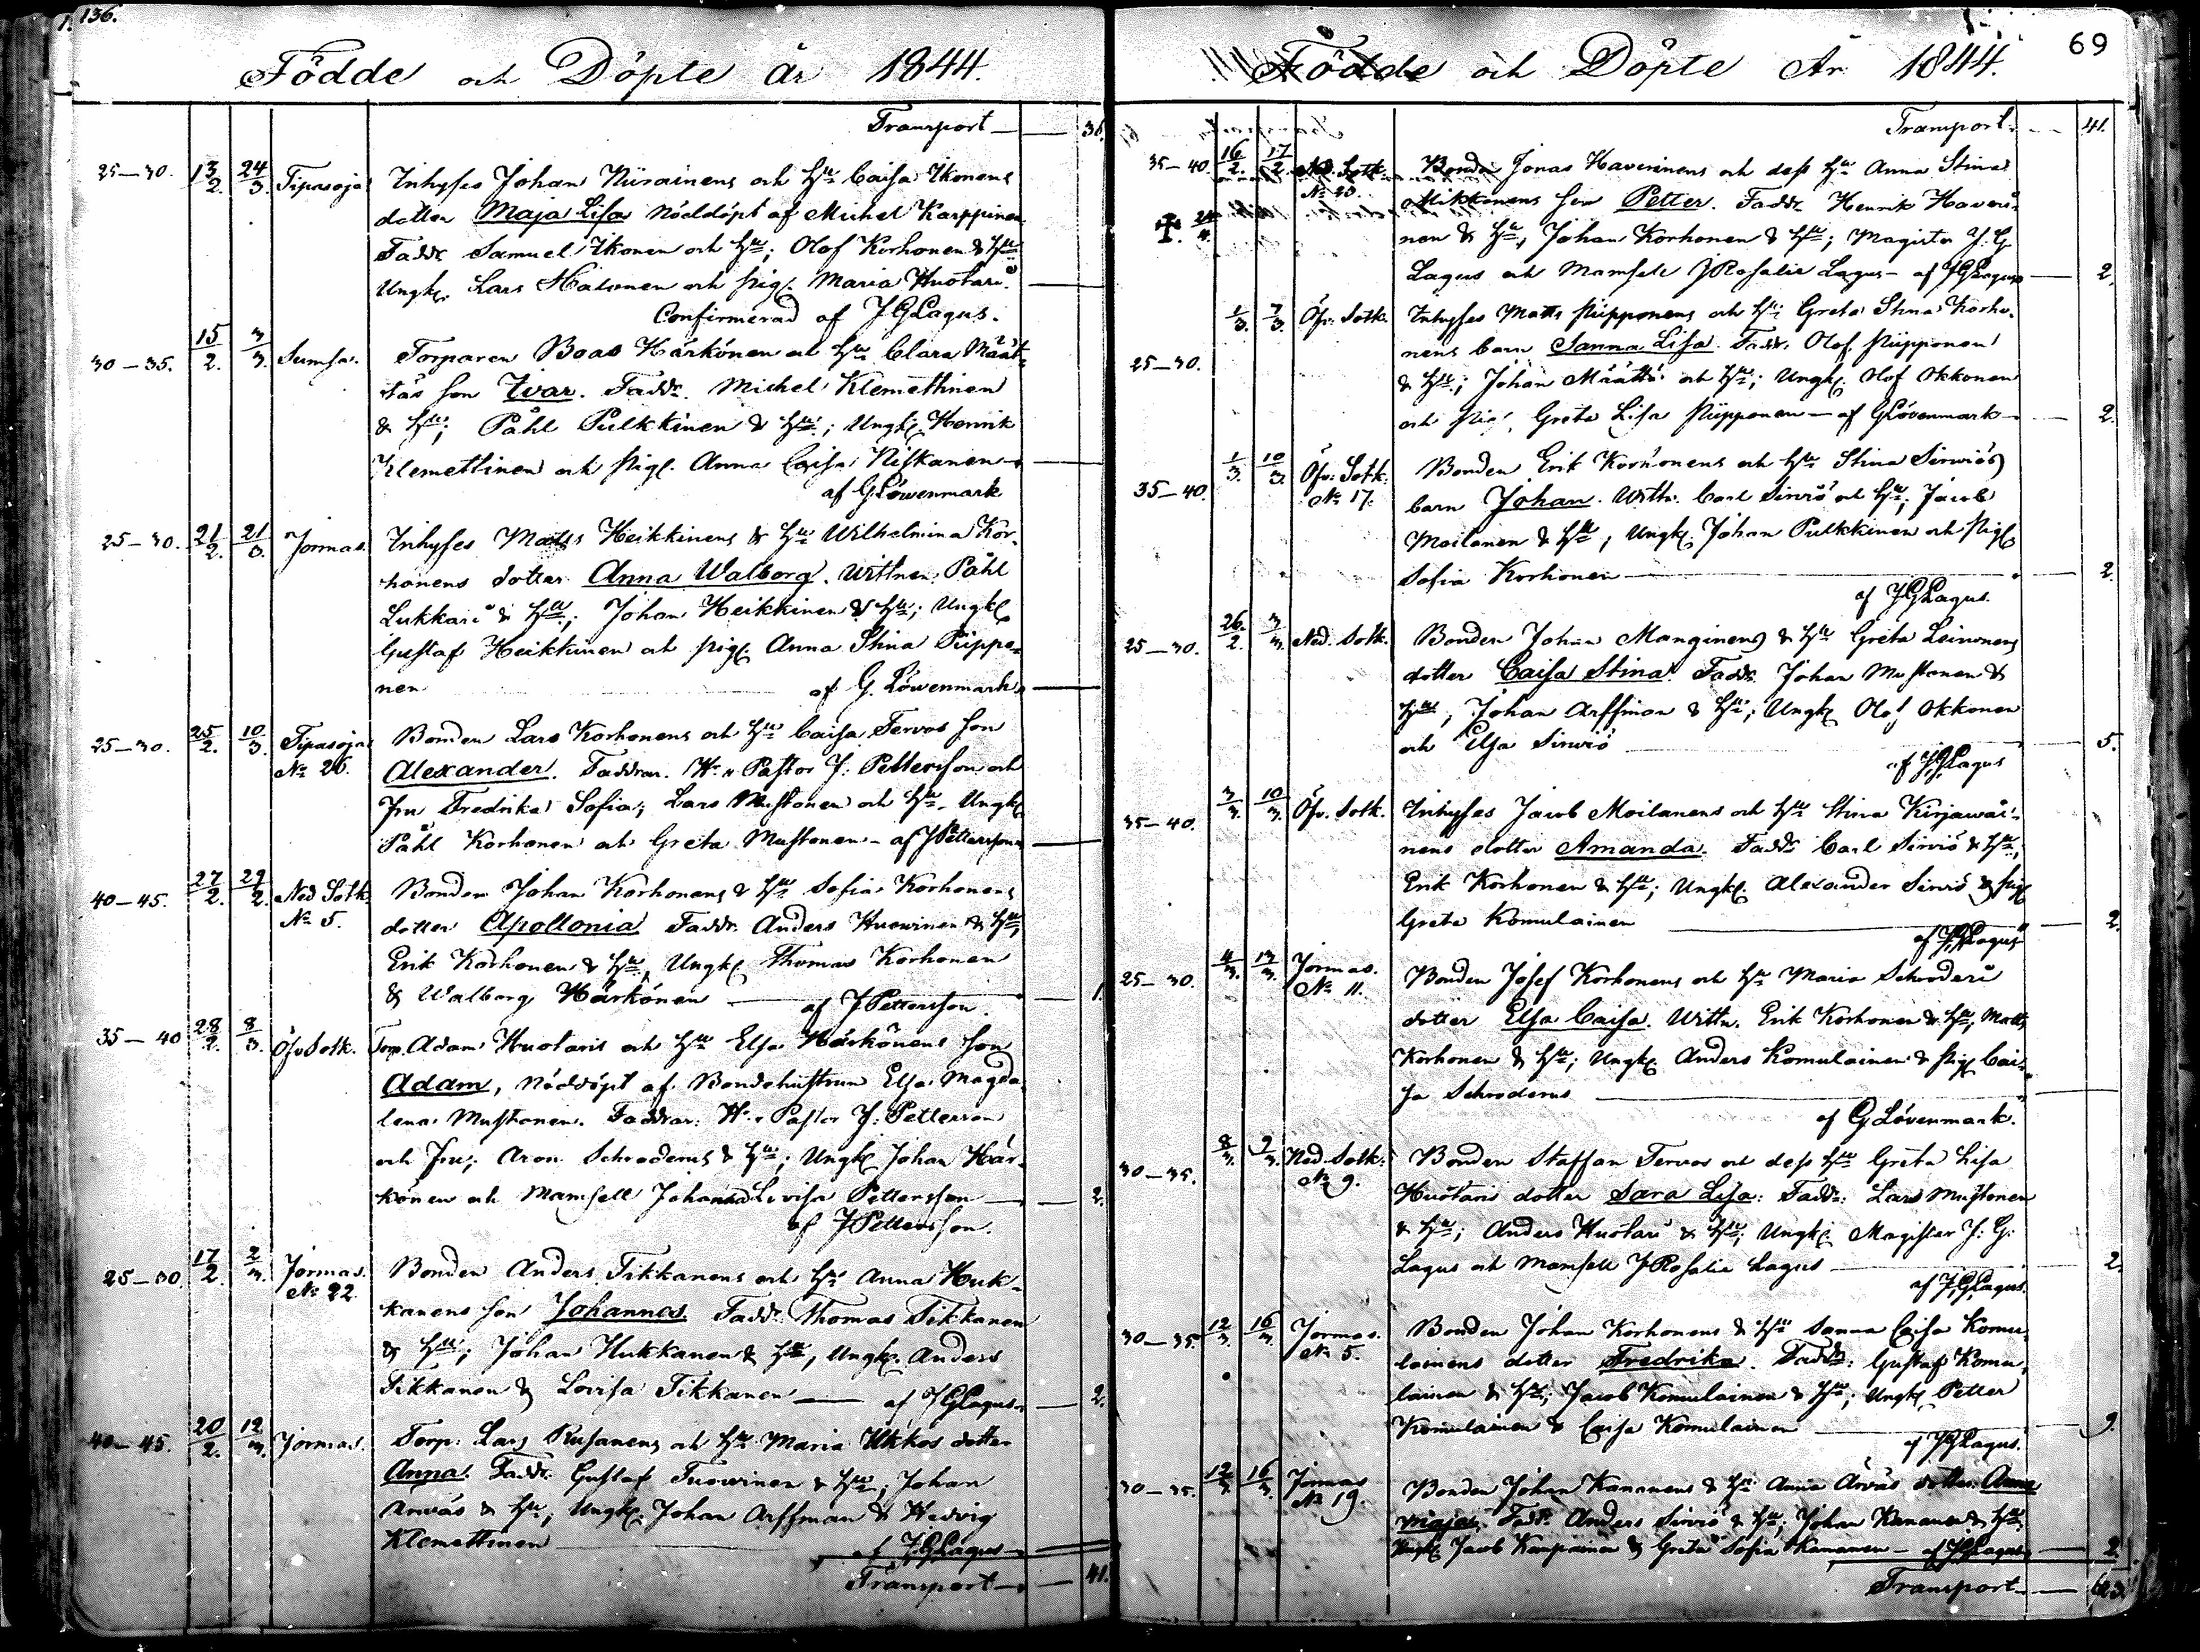 136.
Födde och Döpte år 1844.
Transport — 36.
25—30. 13/2. 24/3. Tipasoja Inhyses Johan Niirainens och Hu Caisa Ikonens
dotter Maja Lisa nöddöpt af Michel Karppinen
Faddr. Samuel Ikonen och Hu; Olof Korhonen & Hu
Ungk. Lars Halonen och pig. Maria Huotari. —
Confirmerad af JGLagus.
30—35. 15/2. 3/3. Sumsa. Torparen Boas Härkönen och Hu Clara Määt-
täs son Ivar. Faddr. Michel Klemettinen
& Hu; Påhl Pulkkinen & Hu; Ungk. Henrik
Klemettinen och pig. Anna Caisa Niskanen —
af GLöwenmark
25—30. 21/2. 21/3. Jormas. Inhyses Matts Heikkinens & Hu Wilhelmina Kor-
honens dotter Anna Walborg. Wittnen Påhl
Lukkari & Hu; Johan Heikkinen & Hu; Ungk.
Gustaf Heikkinen och pig. Anna Stina Piippo-
nen af G. Löwenmark —
25—30. 25/2. 10/3. Tipasoja Bonden Lars Korhonens och Hu Caisa Tervos son
No 26. Alexander. Faddrar. H. Pastor J. Petterson och
Fru Fredrika Sofia; Lars Mustonen och Hu. Ungk.
Påhl Korhonen och Greta Mustonen — af JPettersson —
40—45. 27/2. 29/2. Ned Sotk. Bonden Johan Korhonens & Hu Sofia Korhonens
No 5. dotter Apollonia Faddr. Anders Huowinen & Hu,
Erik Korhonen & Hu, Ungk. Thomas Korhonen
& Walborg Härkönen — 1.
af J Pettersson.
35—40 28/2. 8/3. Öfv Sotk. Torp. Adam Huotaris och Hu Elsa Härkönens son
Adam, nöddöpt af Bondehustrun Elsa Magda-
lena Mustonen. Faddrar: H. Pastor J. Petterson
och Fru; Aron Schroderus & Hu; Ungk. Johan Här-
könen och Mamsell Johanna Lovisa Pettersson — 2.
af J Pettersson.
25—30 17/2. 2/3. Jormas. Bonden Anders Tikkanens och Hu Anna Huk-
No 22. kanens son Johannes. Faddr. Thomas Tikkanen
& Hu; Johan Hukkanen & Hu, Ungk. Anders
Tikkanen & Lovisa Tikkanen — af JGLagus — 2.
40—45. 20/2. 12/3. Jormas. Torp: Lars Rusanens och Hu Maria Ukkos dotter
Anna. Faddr. Gustaf Tuowinen & Hu; Johan
Arwäs & Hu, Ungk. Johan Arffman & Hedvig
Klemettinen
af JGLagus —
Transport — 41.
69
Födde och Döpte År 1844.
Transport. — 41.
35—40. 16/2. 17/2. Ned. Sotk. Bonden Jonas Haverinens och dess Hu Anna Stina
No 20. Mikkonens son Petter. Faddr. Henrik Haveri-
24/4. nen & Hu, Johan Korhonen & Hu; Magister J. G.
Lagus och Mamsell J Rosalie Lagus — af JGLagus — 2.
1/3. 7/3. Öfv. Sotk. Inhyses Matts Piipponens och Hu Greta Stina Korho-
25—30. nens barn Sanna Lisa. Faddr. Olof Piipponen
& Hu; Johan Määttä och Hu; Ungk. Olof Okkonen
och Pig. Greta Lisa Piipponen — af GLövenmark — 2.
35—40. 1/3. 10/3. Öfv. Sotk. Bonden Erik Korhonens och Hu Stina Sirwiös
No 17. barn Johan. Wittn. Carl Sirviö och Hu; Jacob
Moilanen & Hu, Ungk. Johan Pulkkinen och Pig.
Sofia Korhonen — 2.
af JGLagus.
25—30. 26/2. 3/3. Ned. Sotk. Bonden Johan Manginens & Hu Greta Leinonens
dotter Caisa Stina. Faddr. Johan Mustonen &
Hu, Johan Arffman & Hu; Ungk. Olof Okkonen
och Elsa Sirwiö — 5.
af JGLagus
35—40. 3/3. 10/3. Öfv. Sotk. Inhyses Jacob Moilanens och Hu Stina Kirjawai-
nens dotter Amanda. Faddr. Carl Sirviö & Hu,
Erik Korhonen & Hu; Ungk. Alexander Sirviö & pig.
Greta Komulainen — 2.
af JGLagus
25—30. 4/3. 13/3. Jormas. Bonden Josef Korhonens och Hu Maria Schroderi
No 11. dotter Elsa Caisa. Wittn. Erik Korhonen & Hu, Matts
Korhonen & Hu; Ungk. Anders Komulainen & pig. Cai-
sa Schroderus —
af G Lövenmark.
30—35. 8/3. 9/3. Ned. Sotk. Bonden Staffan Tervos och dess Hu Greta Lisa
No 9. Huotaris dotter Sara Lisa: Faddr: Lars Mustonen
& Hu; Anders Huotari & Hu; Ungk. Magister J. G.
Lagus och Mamsell J Rosalie Lagus — 2.
af JGLagus.
30—35. 12/3. 16/3. Jormas. Bonden Johan Korhonens & Hu Sanna Caisa Komu-
No 5. lainens dotter Fredrika. Faddr: Gustaf Komu-
lainen & Hu; Jacob Komulainen & Hu; Ungk. Petter
Komulainen & Caisa Komulainen — 9.
af JGLagus.
30—35. 12/3. 16/3. Jormas Bonden Johan Kananens & Hu Anna Arväs dotter Anna
No 19. Maja. Faddr. Anders Sirviö & Hu; Johan Kananen & Hu,
Ungk. Jacob Kauppinen & Greta Sofia Kananen — af JGLagus — 2.
Transport — 63.